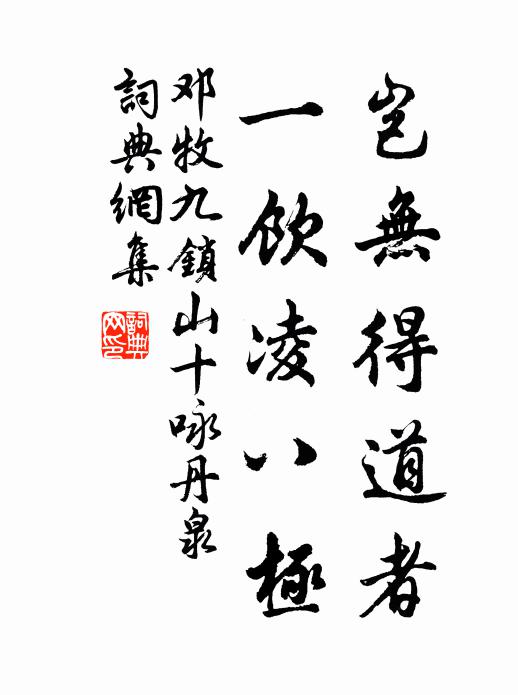 岂無得道者
一飲凌八極
邓牧九鎖山十咏丹泉
詞典網集
詞典网印